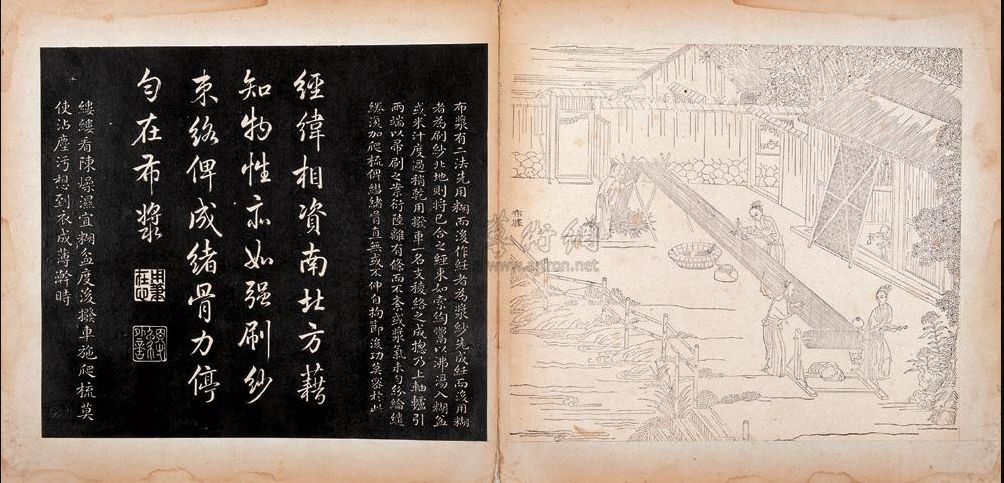 布漿
布漿有二法先用糊而後作紝者為漿紗先成紝而後用糊
者為刷紗北地則將已合之經束如索綯以沸湯入糊盆
或米汁度過稍乾用撥車一名支棱絡之成捻乃上軸轤引
兩端以帚刷之衍陸離有條而不紊或漿氣未勻紛綸繾
綣須加爬梳俾縷縷骨直無或不伸自拘節後功莫密於此
經緯相資南北方藉
知物性亦如强刷紗
束絡俾成緒骨力停
勻在布漿
用筆在心
縷縷看陳燥濕宜糊盆度後撥車施爬梳莫
使沾塵污想到衣成薄澣時
藝術網
www.artron.net